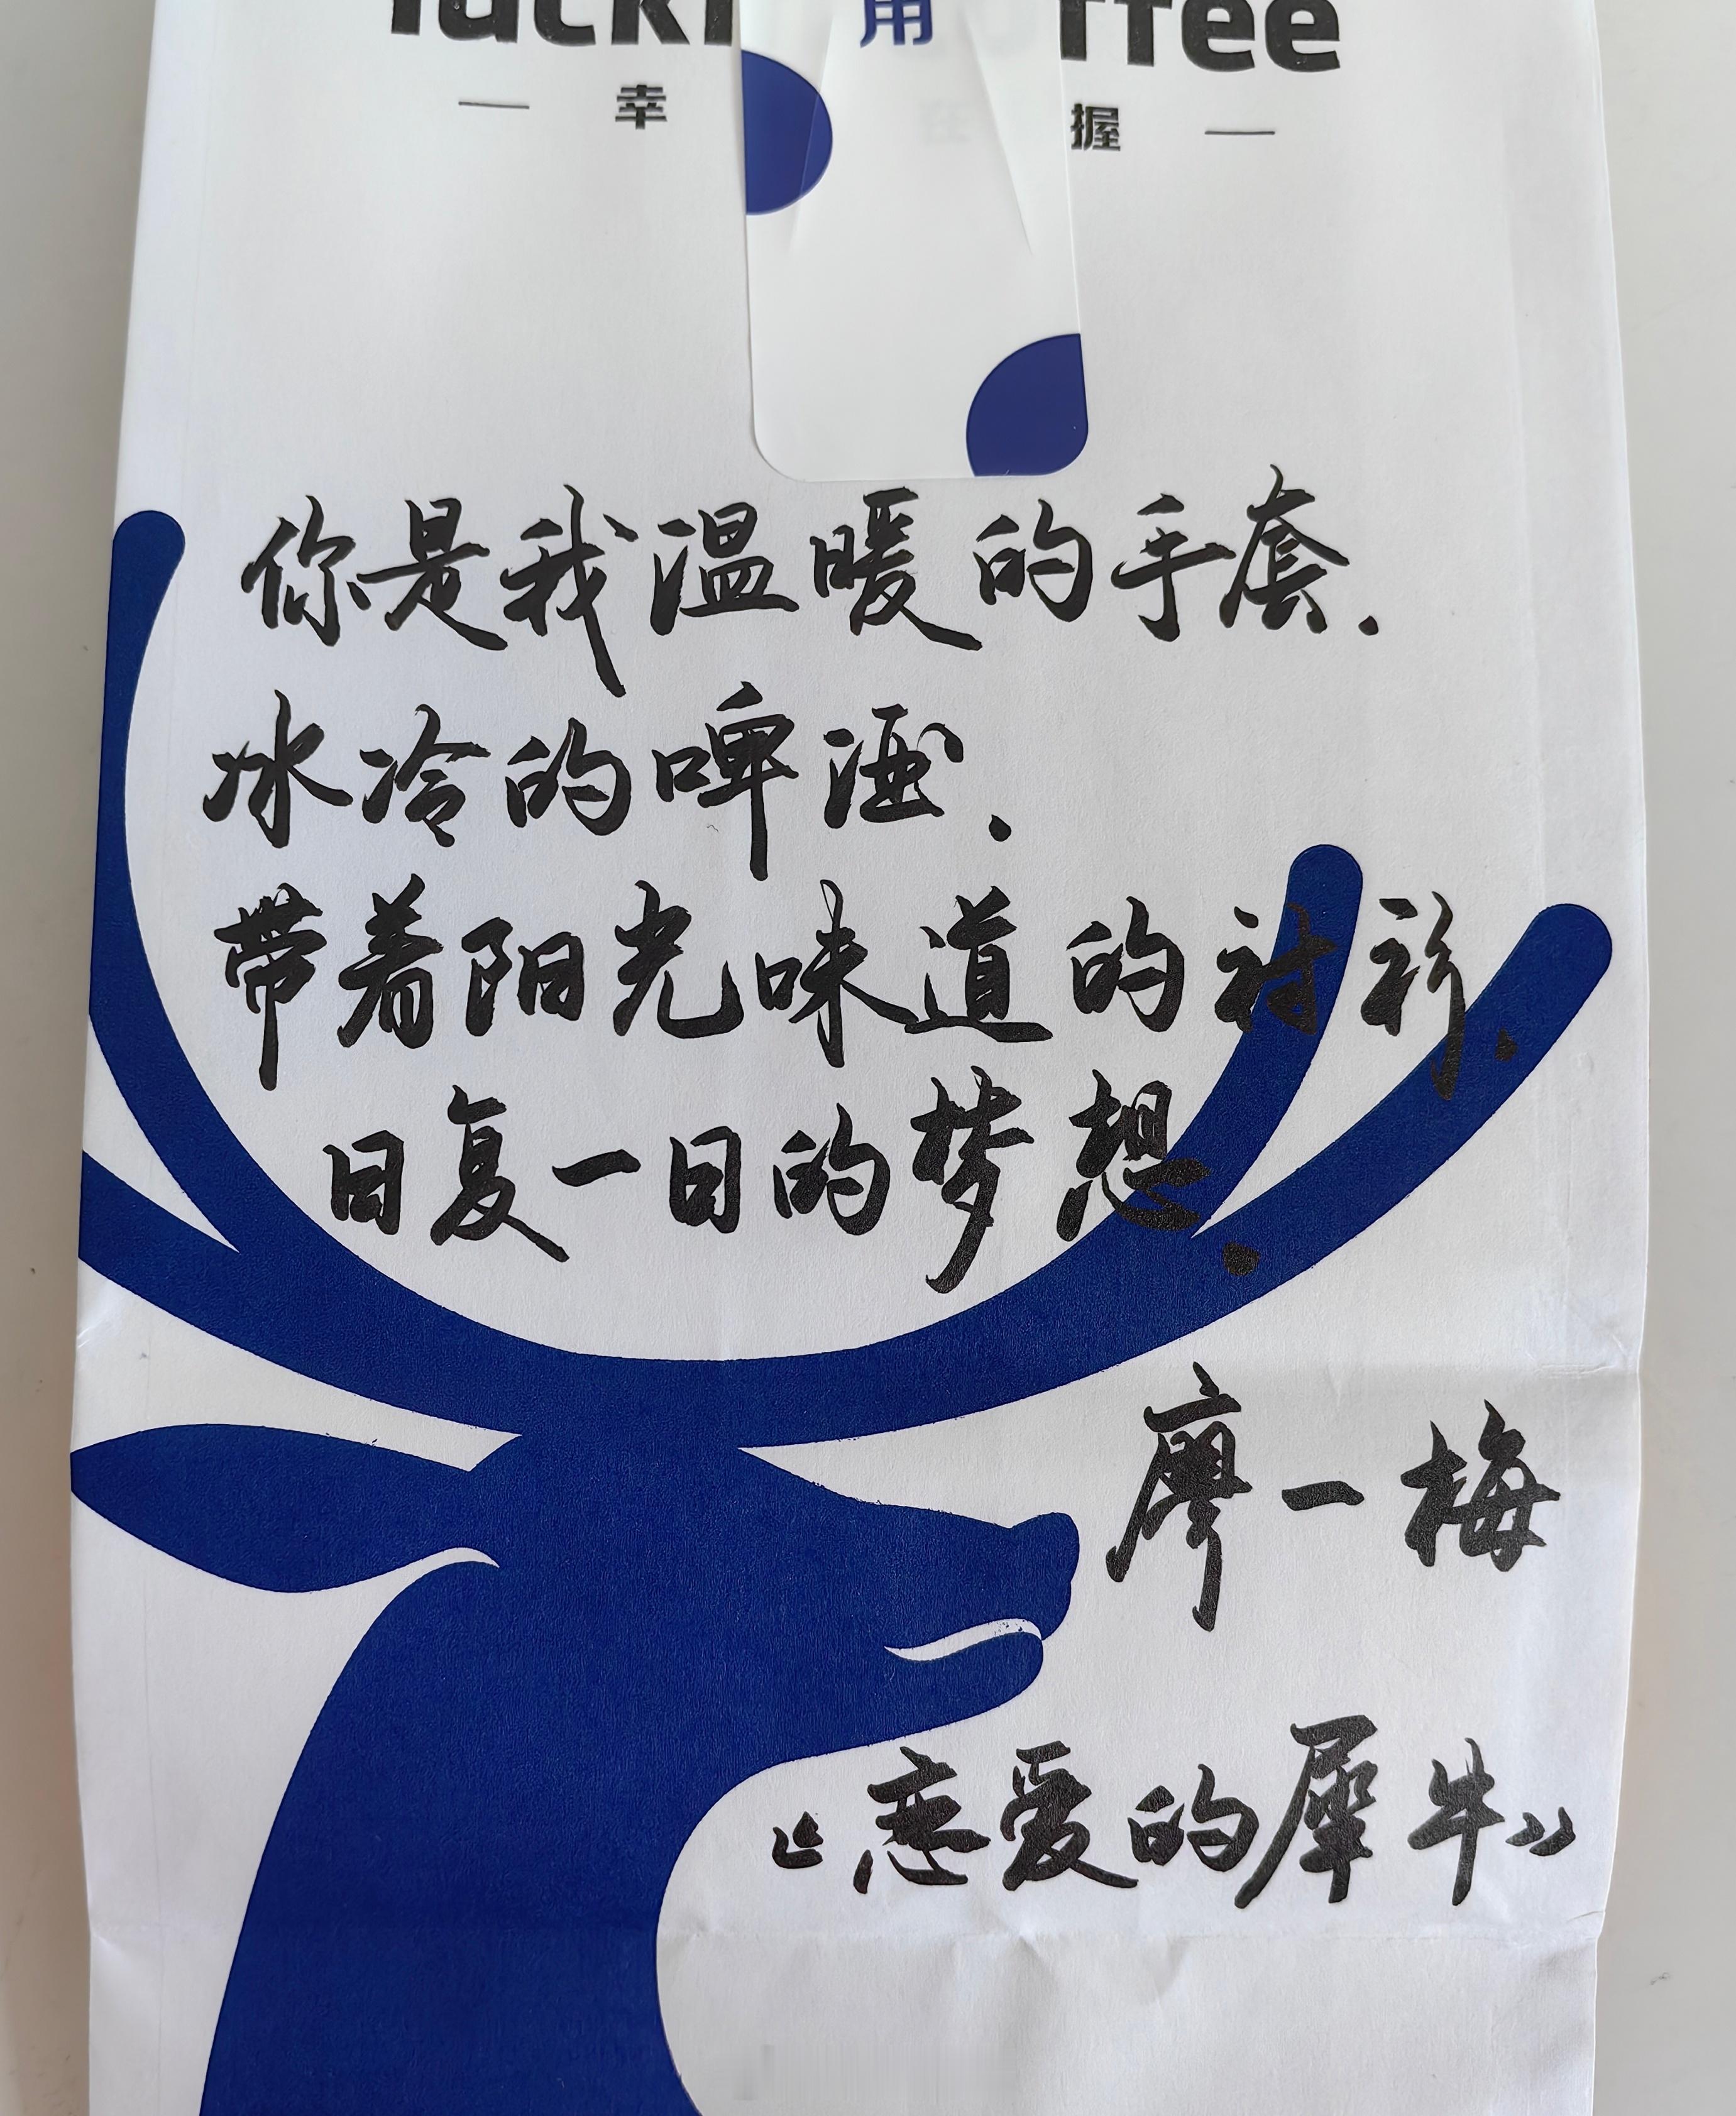 luckin coffee
用
— 幸 握 —
你是我温暖的手套.
冰冷的啤酒.
带着阳光味道的衬衫.
日复一日的梦想.
廖一梅
《恋爱的犀牛》